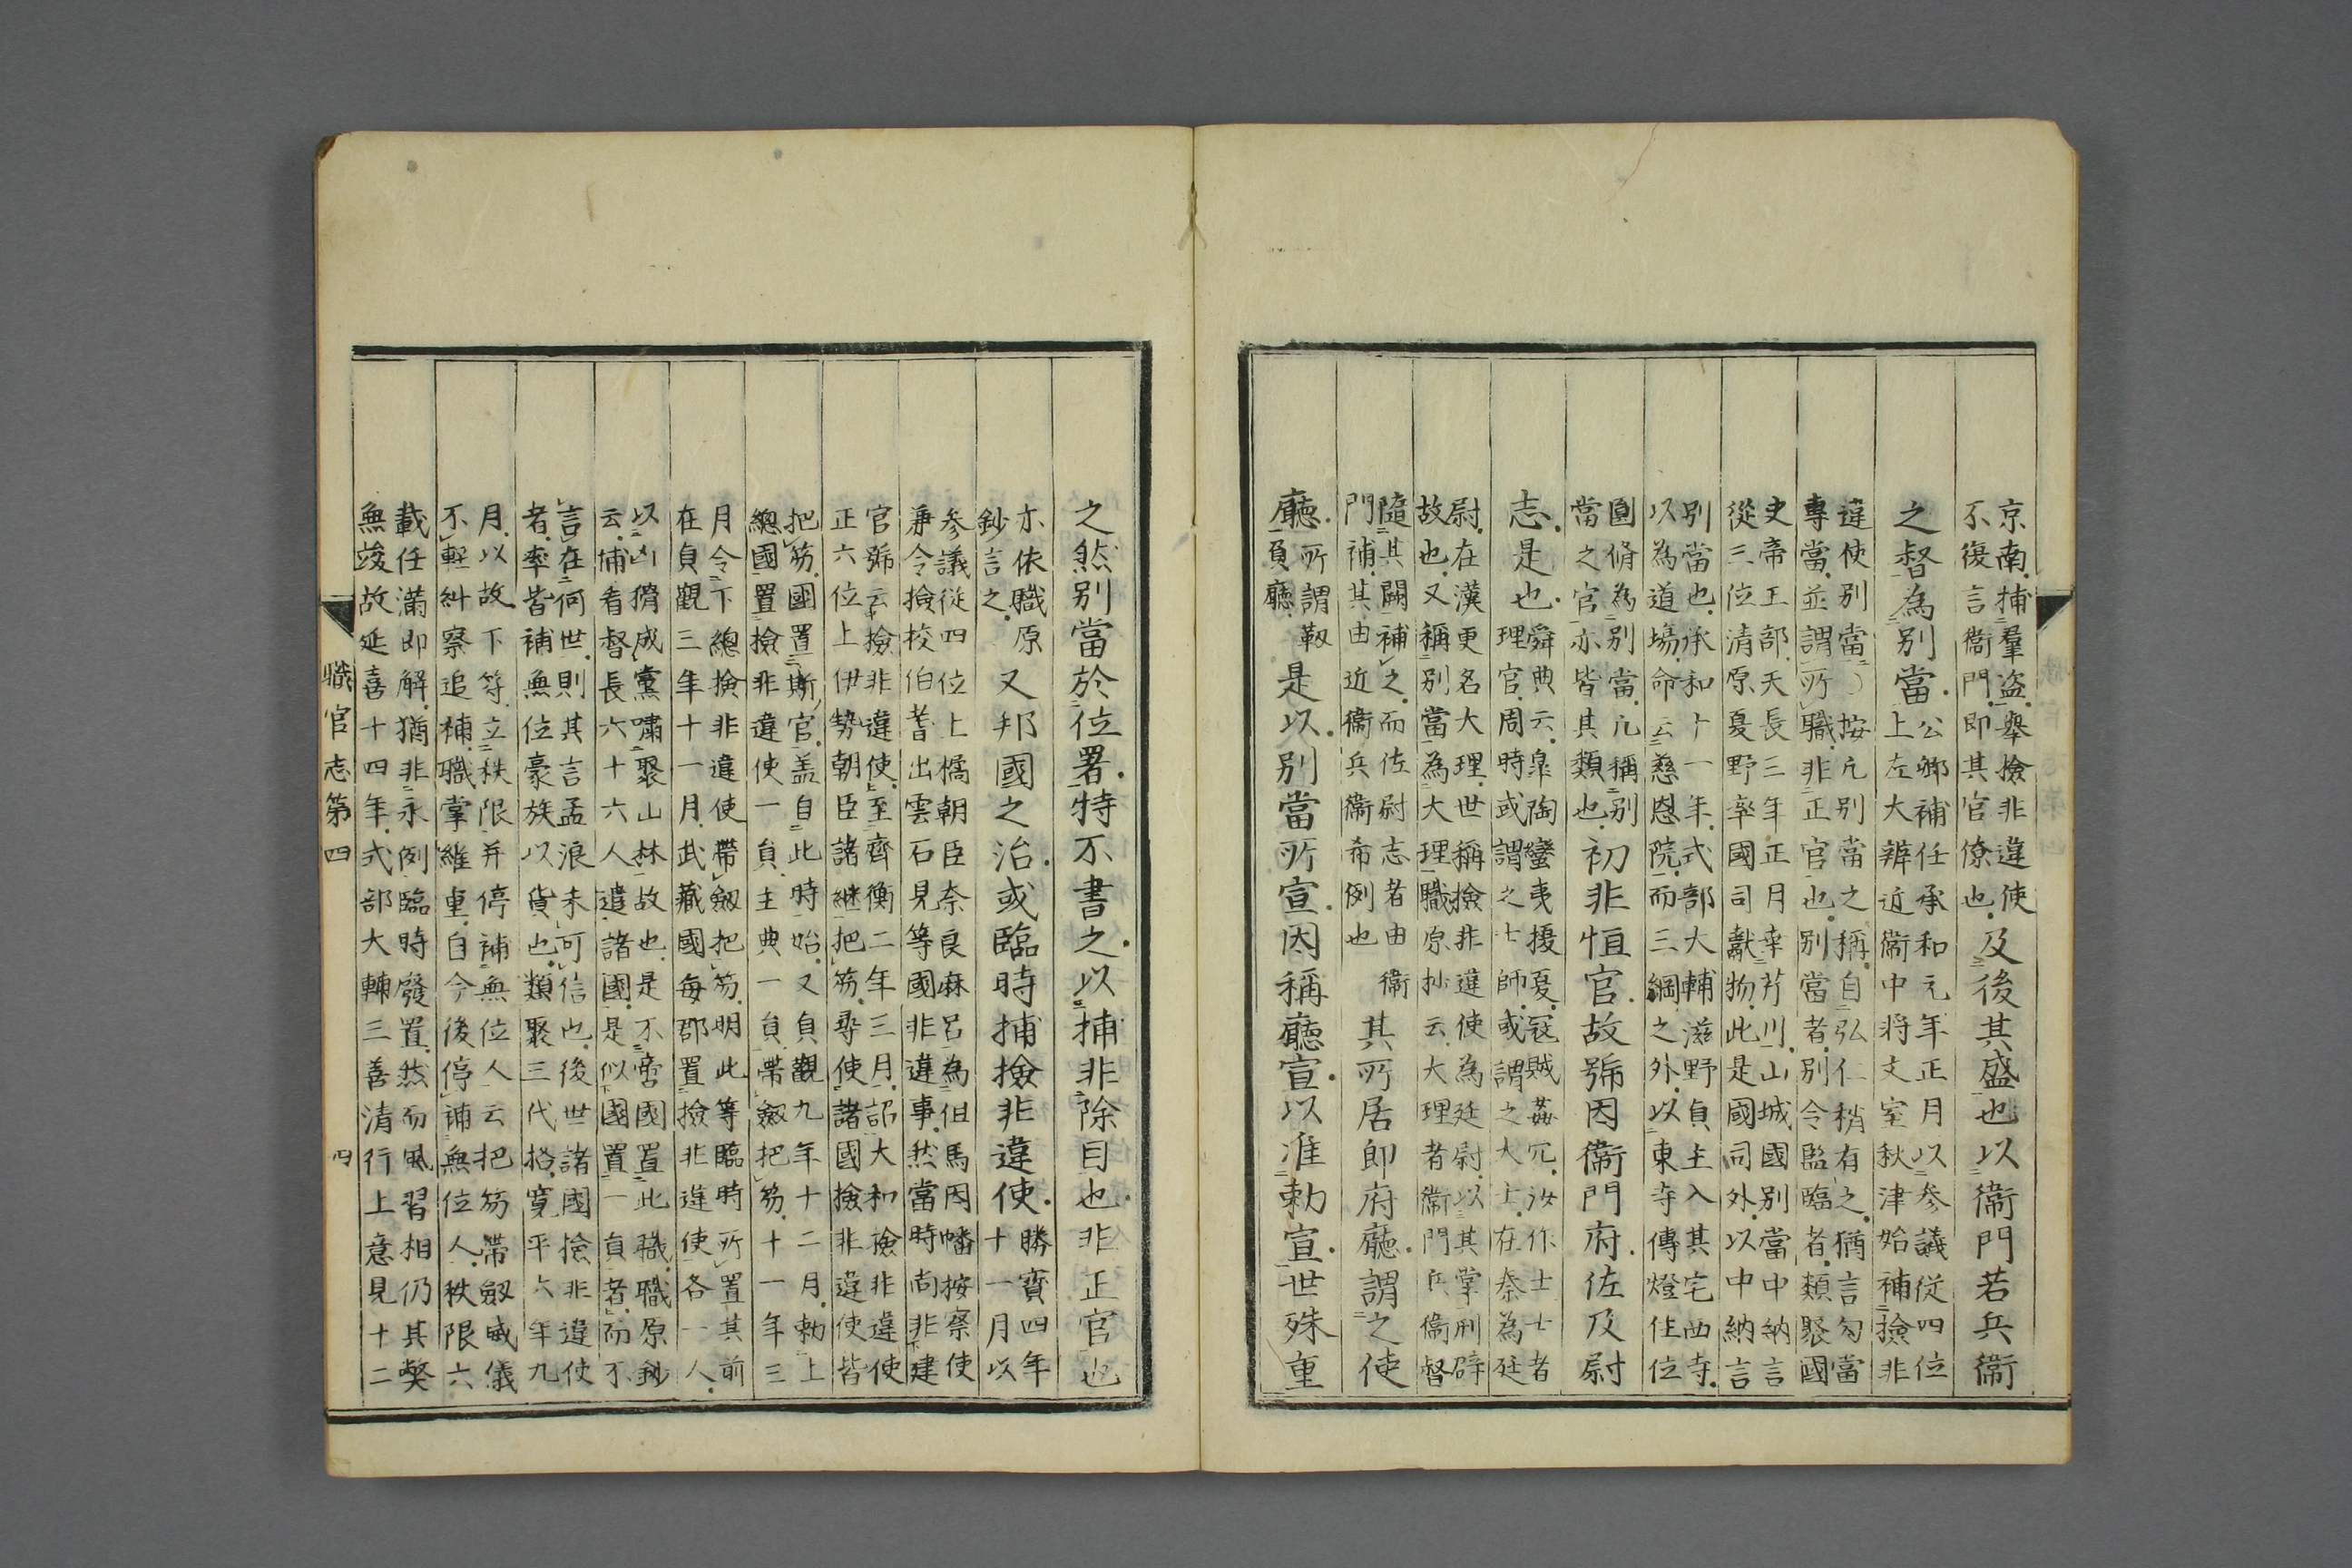 京南捕羣盜舉撿非違使
不復言衞門即其官僚也
及後其盛也以衞門若兵衞
之督為別當
公卿補任承和元年正月以参議從四位
上左大辨近衞中將文室秋津始補撿非
違使別當按凡別當之稱自弘仁稍有之猶言勾當
專當並謂所職非正官也別當者別令監臨者類聚國
史帝王部天長三年正月幸芹川山城國別當中納言
從三位清原夏野率國司獻物此是國司外以中納言
別當也承和十一年式部大輔滋野貞主入其宅西寺
以為道場命云慈恩院而三綱之外以東寺傳燈住位
圓脩為別當凡稱別
當之官亦皆其類也
初非恒官故號因衞門府佐及尉
志是也
舜典云皐陶蠻夷擾夏寇賊姦宄汝作士士者
理官周時或謂之士師或謂之大士在秦為廷
尉在漢更名大理世稱撿非違使為廷尉以其掌刑辟
故也又稱別當為大理職原抄云大理者衞門兵衞督
隨其闕補之而佐尉志者由衞
門補其由近衞兵衞希例也
其所居即府廳謂之使
廳
所謂靱
負廳
是以別當所宣因稱廳宣以准勅宣世殊重
之然別當於位署特不書之以捕非除目也非正官也
亦依職原
鈔言之
又邦國之治或臨時捕撿非違使
勝寶四年
十一月以
参議從四位上橘朝臣奈良麻呂為但馬因幡按察使
兼令撿校伯耆出雲石見等國非違事然當時尚非建
官號云撿非違使至齊衡二年三月詔大和撿非違使
正六位上伊勢朝臣諸継把笏尋使諸國撿非違使皆
把笏國置斯官盖自此時始又貞觀九年十二月勅上
總國置撿非違使一負主典一負帶劔把笏十一年三
月令下總撿非違使帶劔把笏明此等臨時所置其前
在貞觀三年十一月武藏國每郡置撿非違使各一人
以凶猾成黨嘯聚山林故也是不啻國置此職職原鈔
云補看督長六十六人遣諸國是似國置一負者而不
言在何世則其言孟浪未可信也後世諸國撿非違使
者率皆補無位豪族以貨也類聚三代格寛平六年九
月以故下等立秩限并停補無位人云把笏帶劔威儀
不輕糾察追補職掌維重自今後停補無位人秩限六
載任滿即解猶非永例臨時廢置然而風習相仍其獘
無竣故延喜十四年式部大輔三善清行上意見十二
職官志第四
四